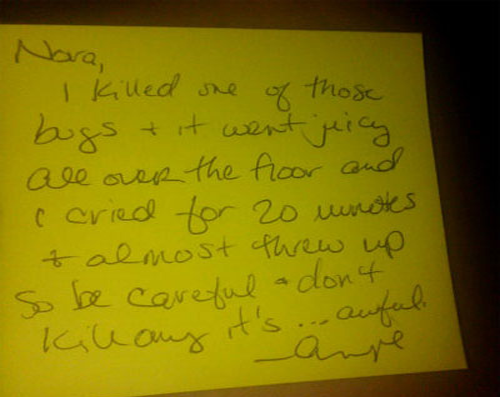 Nora,
I killed one of those
bugs + it went juicy
all over the floor and
I cried for 20 minutes
+ almost threw up
so be careful + don't
kill any it's ... awful.
-Angie